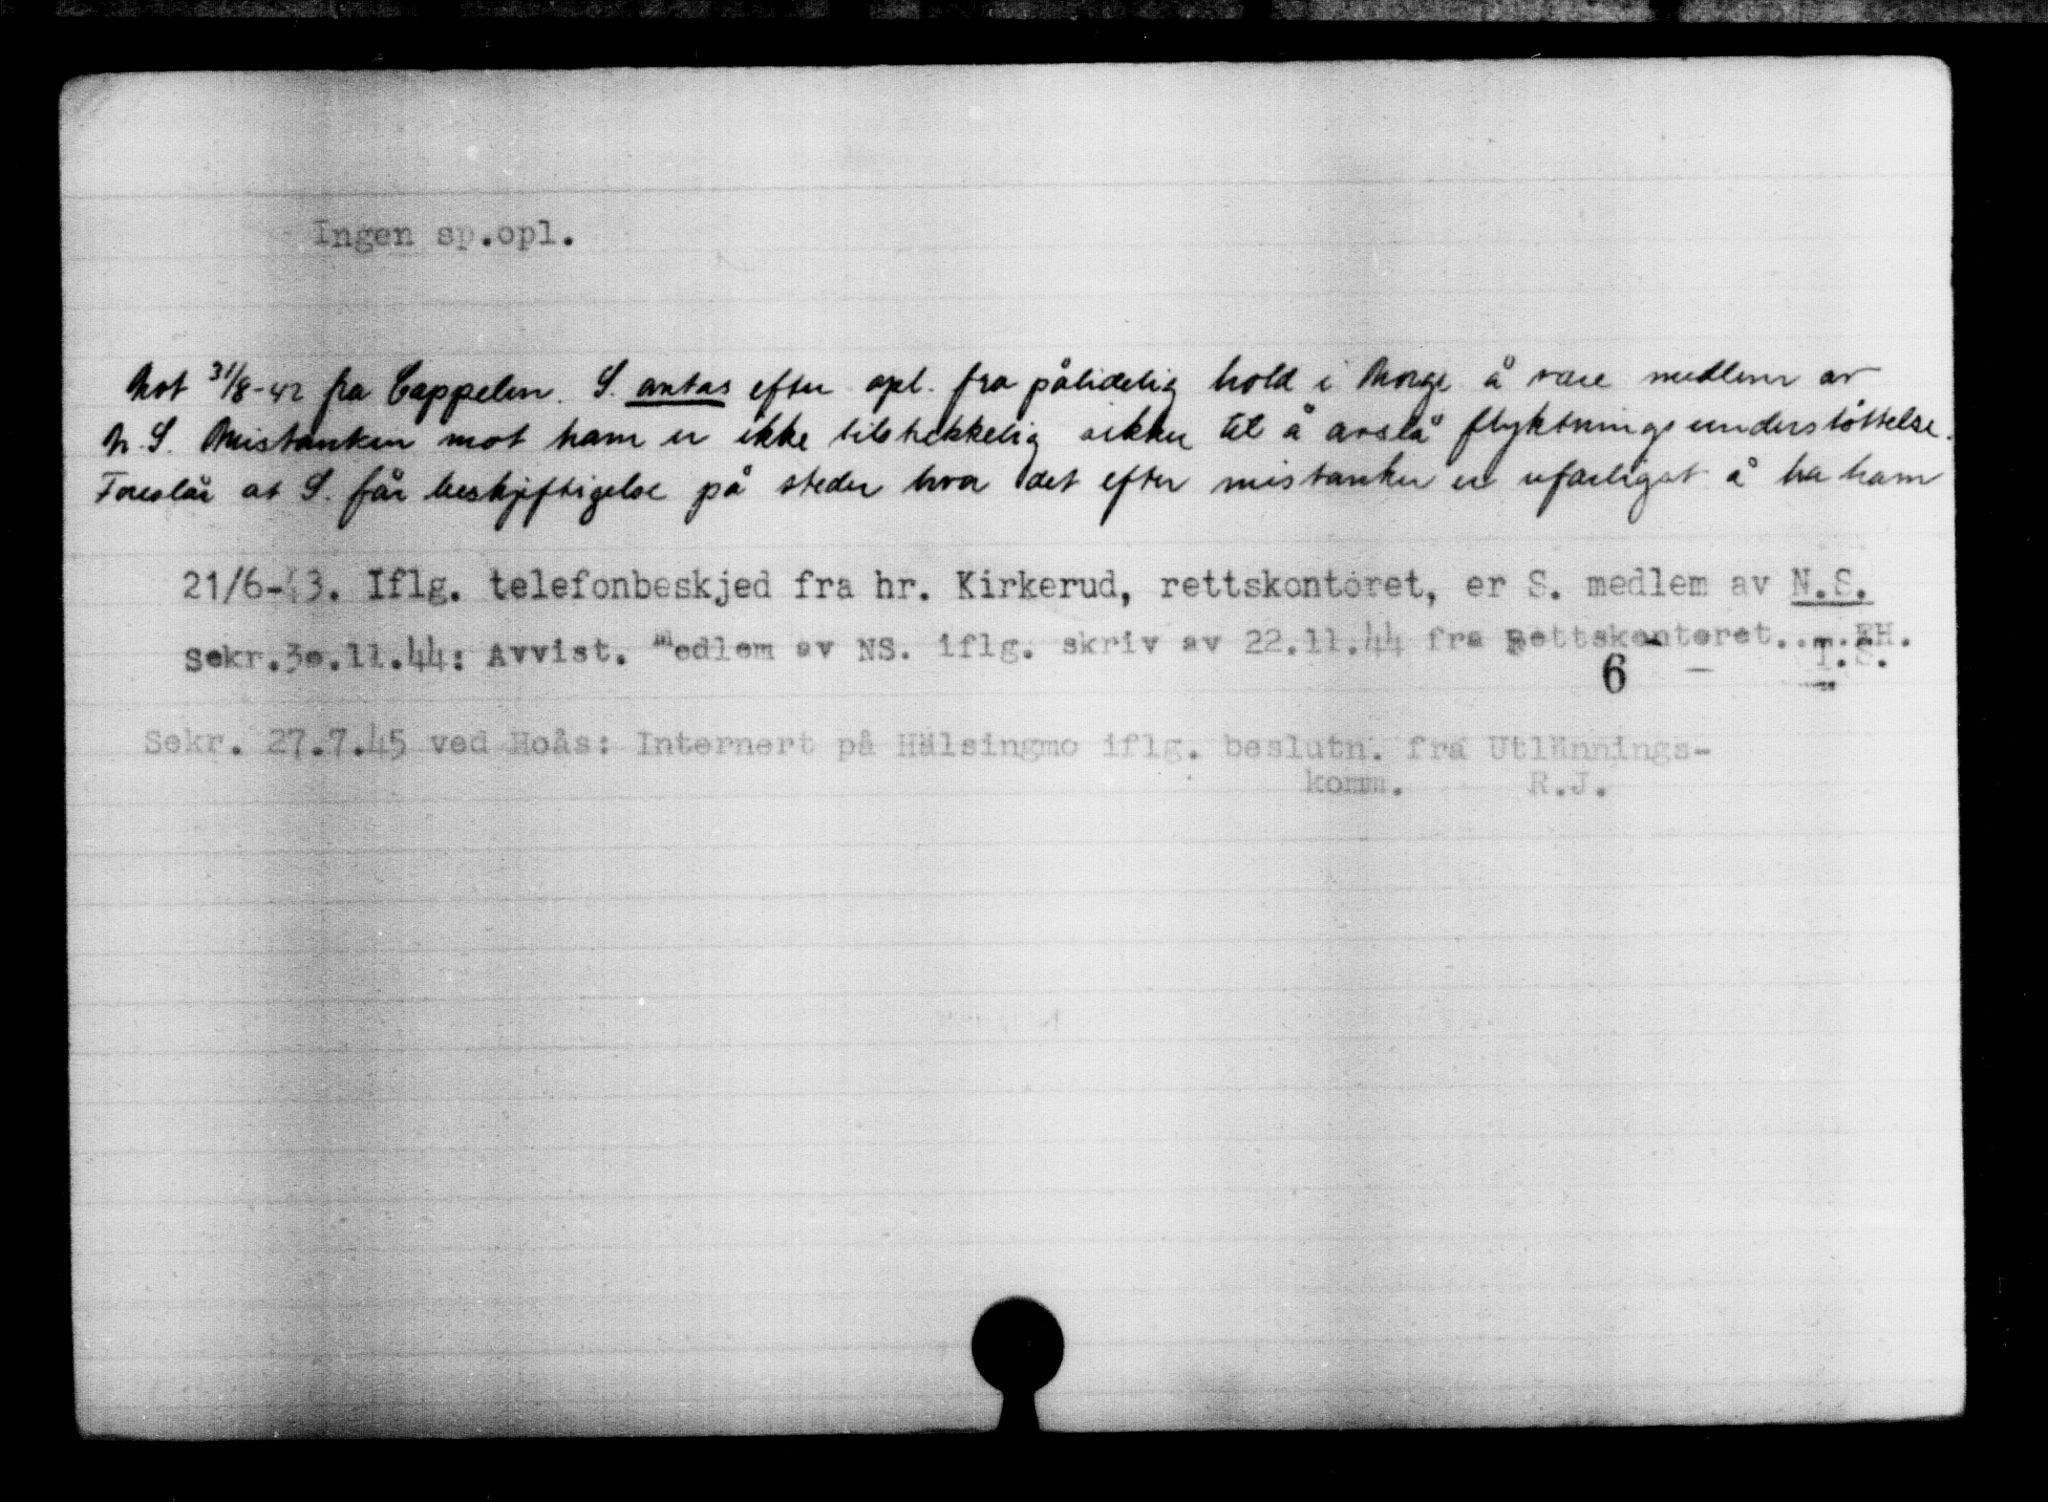 Ingen sp.opl.
Not 31/8-42 fra Cappelen. S. antas efter opl. fra pålidelig hold i Norge å være medlem av
N.S. Mistanken mot ham er ikke tilstrekkelig sikker til å avslå flyktningsunderstöttelse.
Foreslår at S. får beskjeftigelse på steder hvor det efter mistanken er ufarligst å ha ham
21/6-43. Iflg. telefonbeskjed fra hr. Kirkerud, rettskontoret, er S. medlem av N.S.
Sekr.30.11.44: Avvist. Medlem av NS. iflg. skriv av 22.11.44 fra Rettskontoret.....EH.
6 — T.S.
Sekr. 27.7.45 ved Hoås: Internert på Hälsingmo iflg. beslutn. fra Utlännings-
komm. R.J.